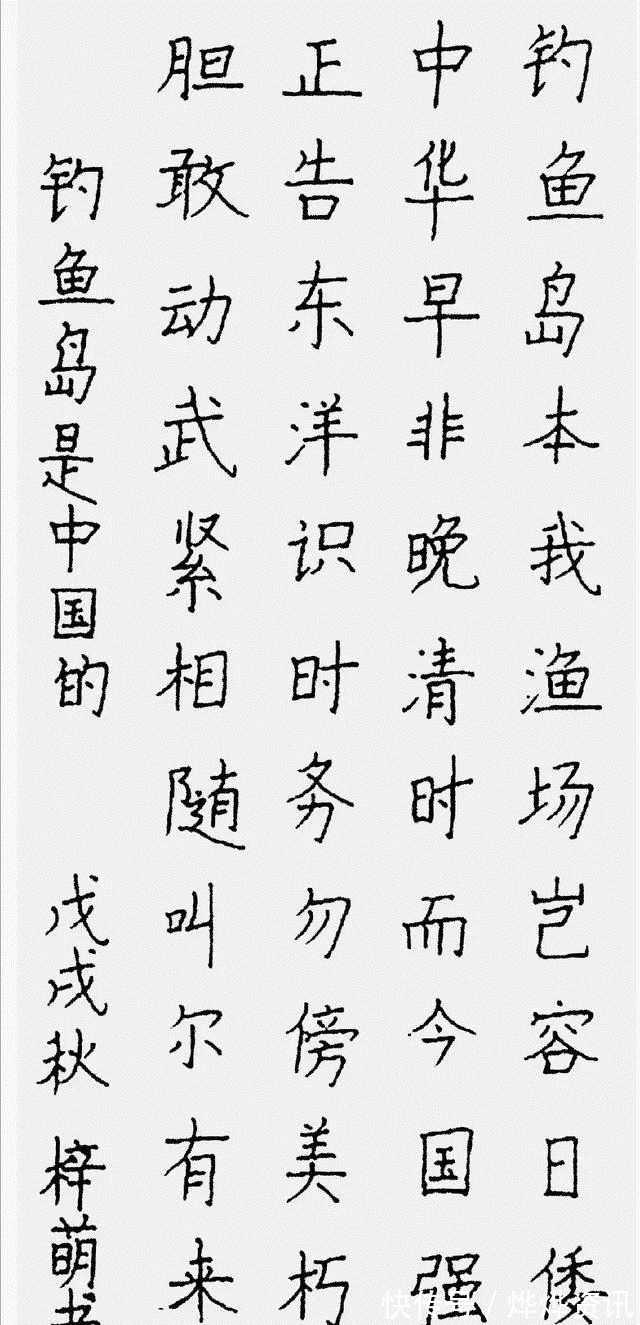 钓鱼岛本我渔场岂容日倭
中华早非晚清时而今国强
正告东洋识时务勿傍美朽
胆敢动武紧相随叫尔有来
钓鱼岛是中国的 戊戌秋 梓萌书
快传号 / 烨烨资讯